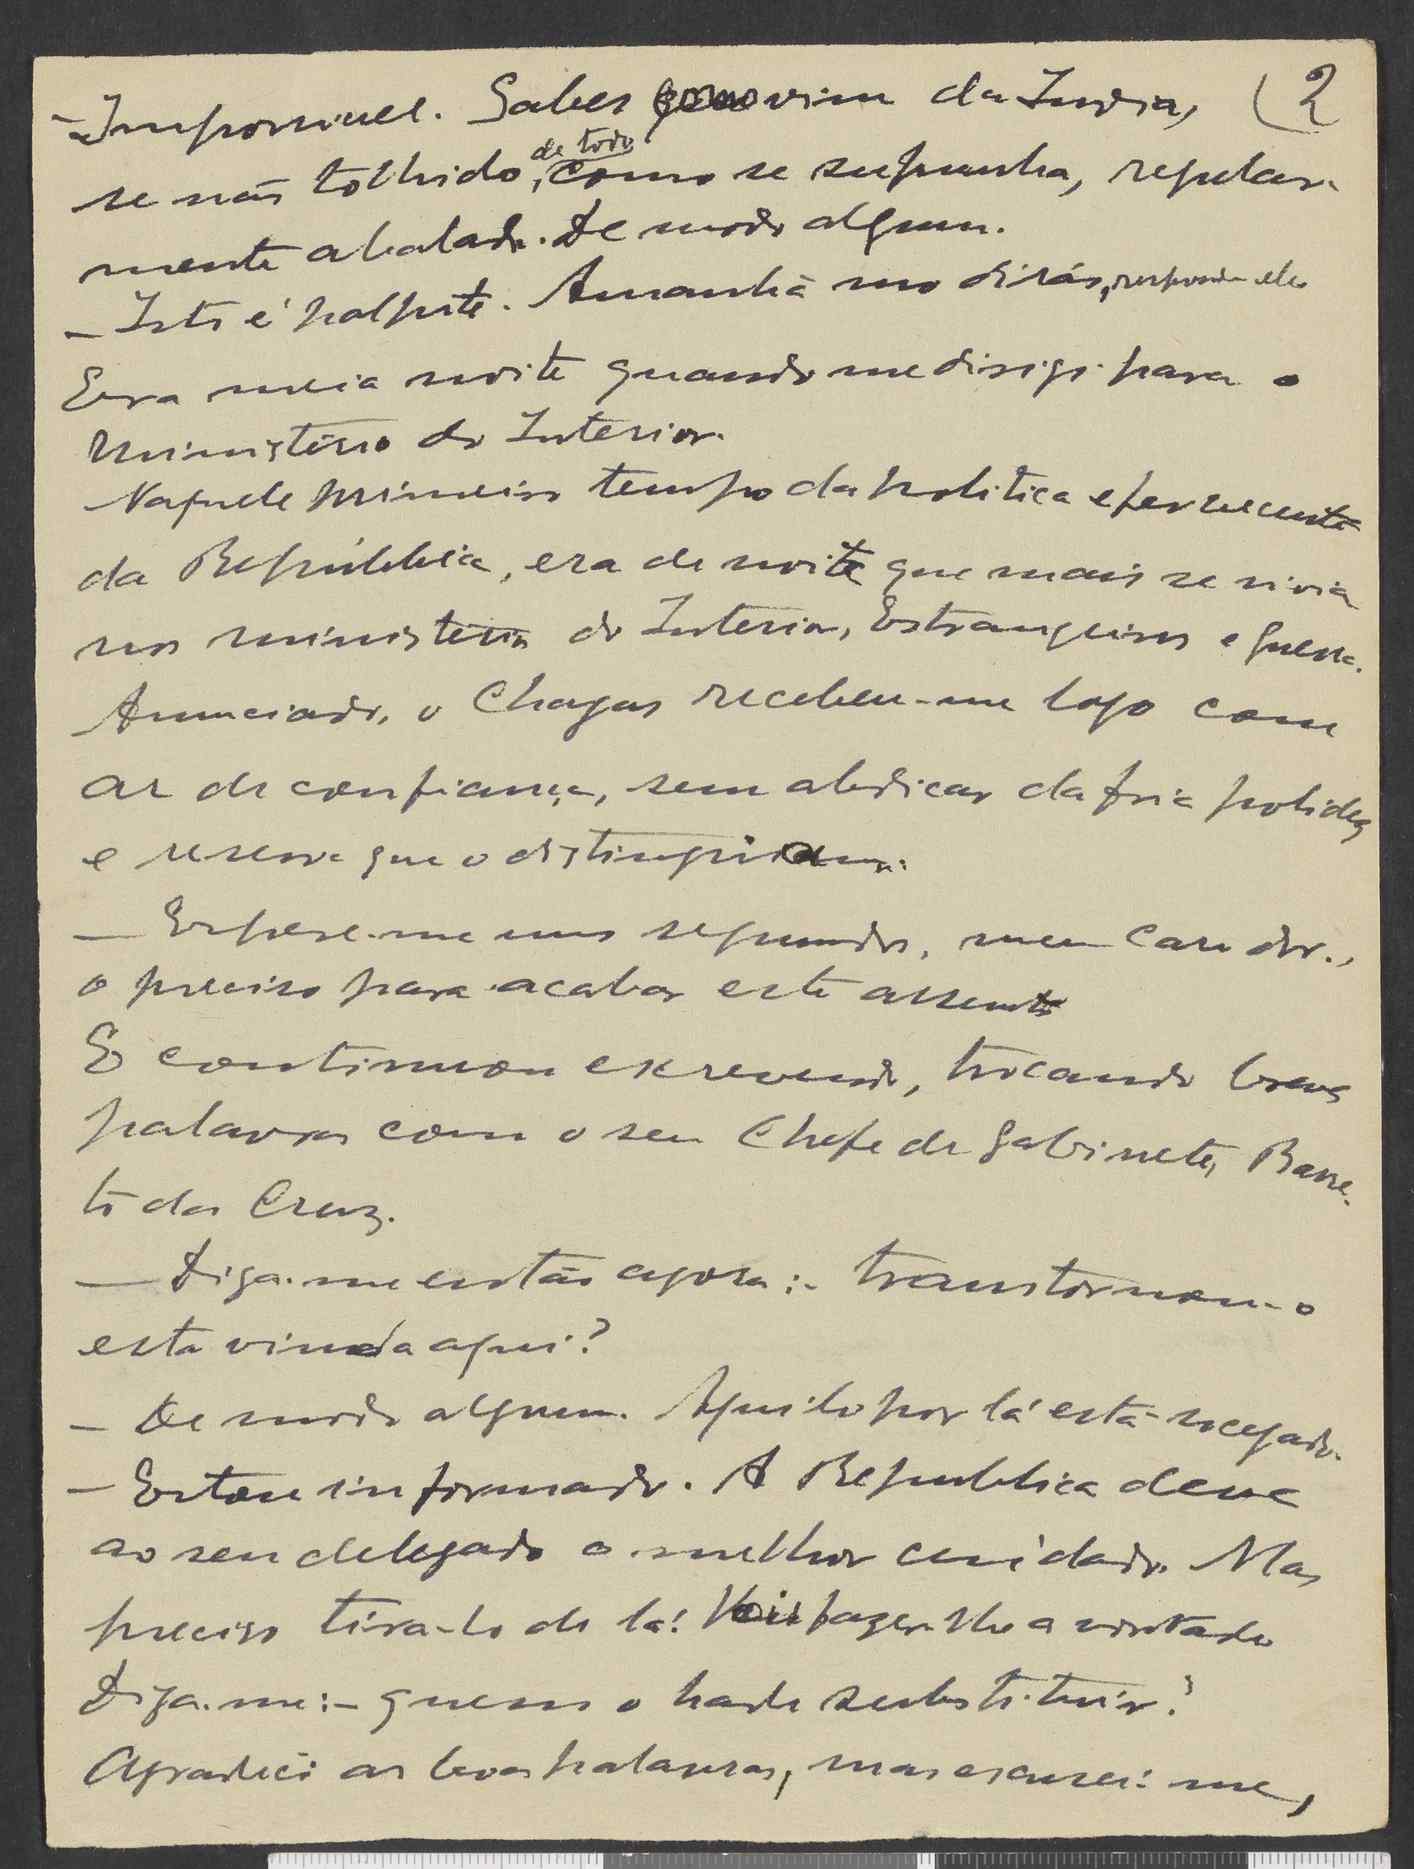 - Impossivel. Sabes como vim da India, (2
se não tolhido, de todo como se supunha, regular-
mente abalado. De modo algum.
- Isto é palpite. Amanhã mo dirás, respondeu ele
Era meia noite quando me dirigi para o
Ministério do Interior.
Naquele primeiro tempo da politica efervescente
da República, era de noite que mais se vivia
nos ministerios do Interior, Estrangeiros e Guerra.
Anunciado, o Chagas recebeu-me logo com
ar de confiança, sem abdicar da fria polidez
e reserva que o distinguiam.
— Espere-me uns segundos, meu caro dr.,
o preciso para acabar este assunto
E continuou escrevendo, trocando breves
palavras com o seu Chefe de Gabinete, Barre-
to da Cruz.
— Diga-me então agora:- transtornou-o
esta vinda aqui?
- De modo algum. Aquilo por lá está socegado.
- Estou informado. A Republica deve
ao seu delegado o melhor cuidado. Mas
preciso tira-lo de lá! Vou fazer-lhe a vontade
Diga-me:- quem o hade substituir?
Agradeci as boas palavras, mas escusei-me,